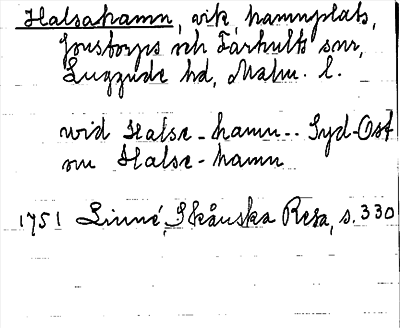 Halsahamn, vik, hamnplats,
Jonstorps och Farhults snr,
Luggude hd, Malm. l.
wid Halse-hamn-- Syd-Ost
om Halse-hamn
1751 Linné, Skånska Resa, s. 330